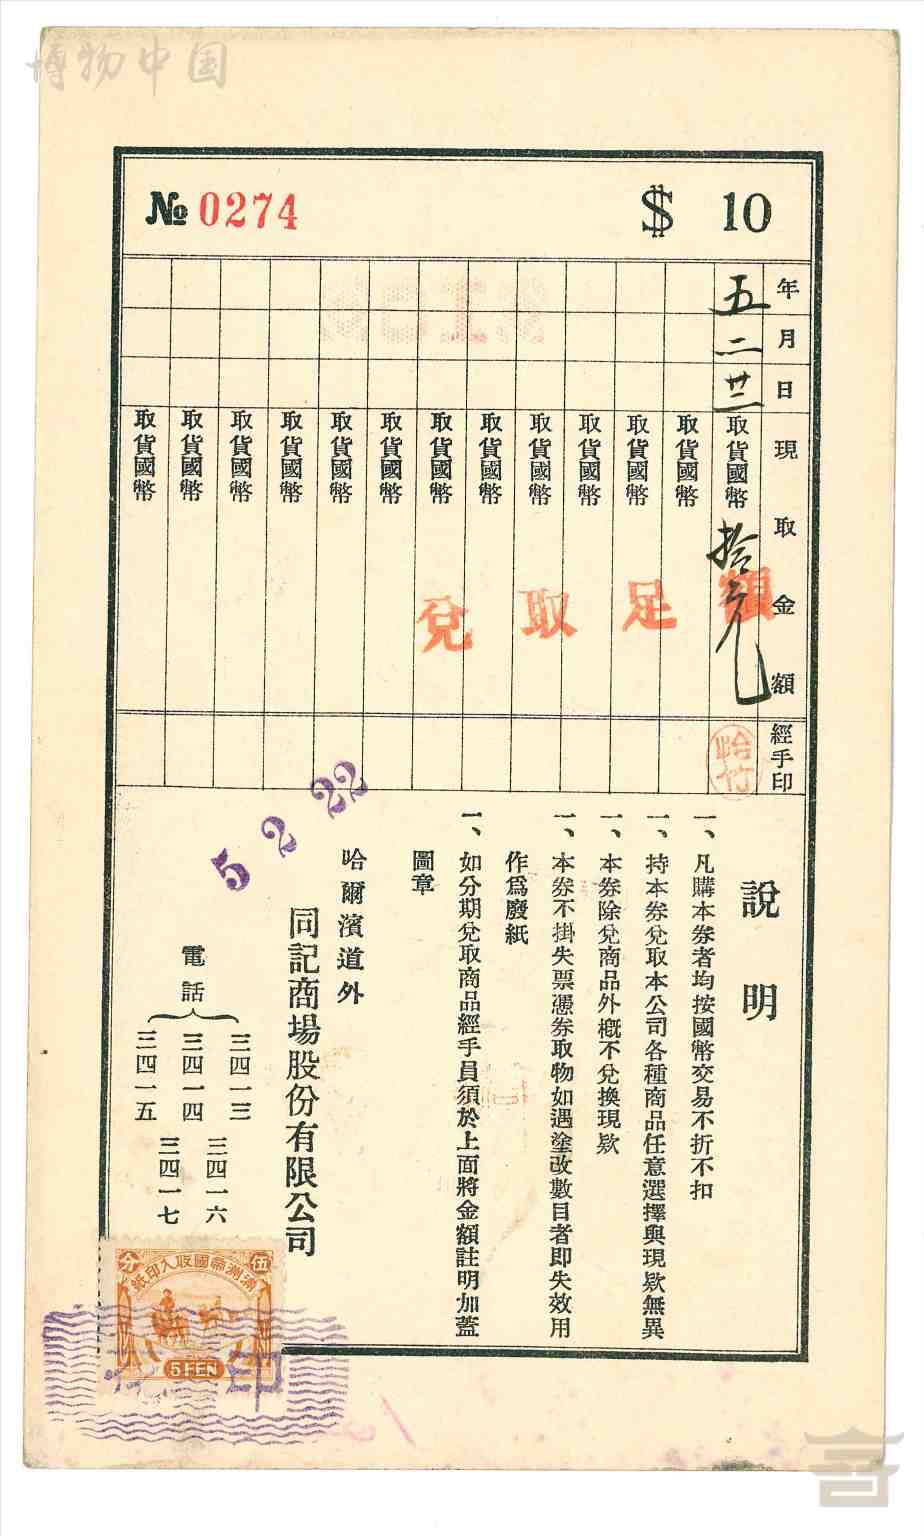 博物中国
№ 0274
$ 10
年 月 日 現取金額 經手印
五 二 廿二 取貨國幣 拾元 怡竹
取貨國幣
取貨國幣
取貨國幣
取貨國幣
取貨國幣
取貨國幣
取貨國幣
取貨國幣
取貨國幣
取貨國幣
取貨國幣
取貨國幣
兌取足額
說明
一、凡購本券者均按國幣交易不折不扣
一、持本券兌取本公司各種商品任意選擇與現欵無異
一、本券除兌商品外概不兌換現欵
一、本券不掛失票憑券取物如遇塗改數目者即失效用
作爲廢紙
一、如分期兌取商品經手員須於上面將金額註明加蓋
圖章
5 2 22
哈爾濱道外
同記商場股份有限公司
電話
三四一三
三四一四
三四一五
三四一六
三四一七
滿洲帝國收入印紙
伍分
5 FEN
印